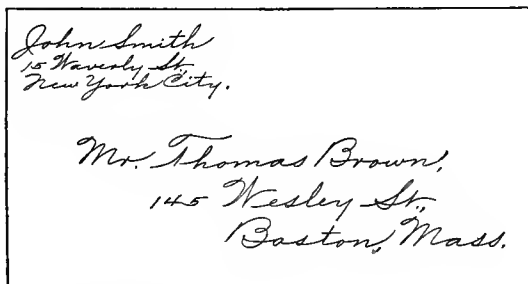 John Smith
15 Waverly St.,
New York City.
Mr. Thomas Brown,
145 Wesley St.,
Boston, Mass.